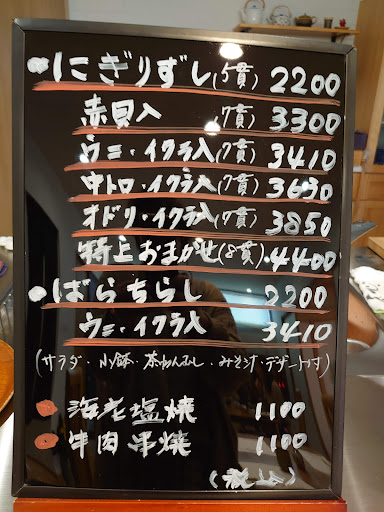 ●にぎりずし(5貫) 2200
赤貝入 (7貫) 3300
ウニ・イクラ入(7貫) 3410
中トロ・イクラ入(7貫) 3630
オドリ・イクラ入(7貫) 3850
特上おまかせ(8貫)・4400
●ばらちらし 2200
ウニ・イクラ入 3410
(サラダ・小鉢・茶わんむし・みそ汁・デザート付)
●海老塩焼 1100
●牛肉串焼 1100
(税込)